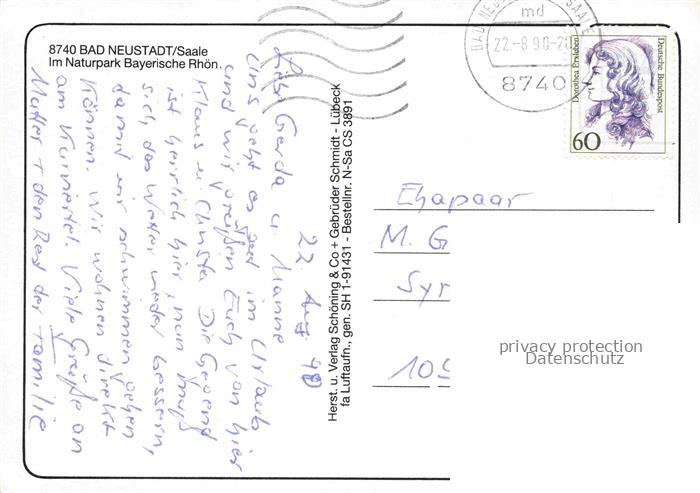 8740 BAD NEUSTADT/Saale
Im Naturpark Bayerische Rhön.
22 Aug 90
Liebe Gerda u. Manne
Uns geht es gut im Urlaub
und wir grüßen Euch von hier
Klaus u. Christa Die Gegend
ist herrlich hier, nun muß
sich das Wetter wieder bessern,
damit wir schwimmen gehen
können. Wir wohnen direkt
am Kurviertel. Viele Grüße an
Mutter + den Rest der Familie
Herst. u. Verlag Schöning & Co + Gebrüder Schmidt - Lübeck
fa Luftaufn., gen. SH 1-91431 - Bestellnr. N-Sa CS 3891
BAD NEUS SAALE
md
22.-8.90-20
8740
Dorothea Erxleben
Deutsche Bundespost
60
Ehepaar
M. G
Syr
109
privacy protection
Datenschutz